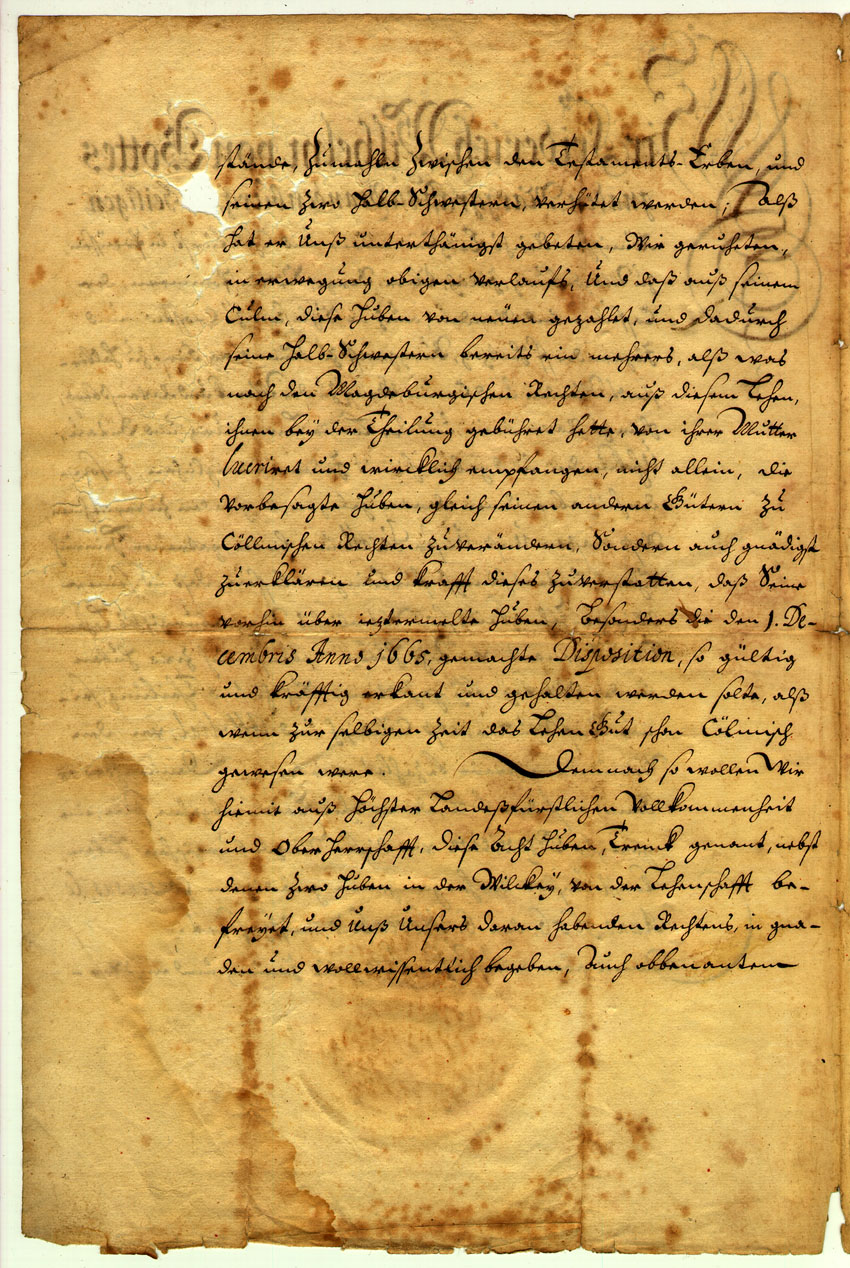 stände, Zumahln Zwischen den Testaments-Erben, und
seinen Zwo Halb-Schwestern, verhütet werden; Alß
hat er Unß unterthänigst gebeten, Wir geruheten,
in erwegung obigen verlaufs, Und daß auß seinem
Culm, diese Huben von neüen gezahlet, und dadurch
seine Halb-Schwestern bereits ein mehrers, alß was
nach den Magdeburgischen Rechten, auß diesem Lehen,
ihnen bey der Theilung gebühret hette, von ihrer Mutter
lucriret und wircklich empfangen, nicht allein, die
vorbesagte Huben, gleich seinen andern Gütern Zu
Cöllmischen Rechten Zuverändern, Sondern auch gnädigst
Zuerklären und krafft dieses Zuverstatten, daß Seine
vorhin über ieztermelte Huben, besonders die den 1. De-
cembris Anno 1665, gemachte Disposition, so gültig
und kräfftig erkant und gehalten werden solte, alß
wenn zur selbigen Zeit das Lehen Gut schon Cölmisch
gewesen were. Demnach so wollen Wir
hiemit auß Höchster Landeßfürstlichen Vollkommenheit
und Ober Herrschafft, diese Acht Huben, Trenck genant, nebst
denen Zwo Huben in der Wilckey, von der Lehenschafft be-
freyet, und Unß Unsers daran habenden Rechtens, in gna-
den und wollwissentlich begeben, Auch obbenanten